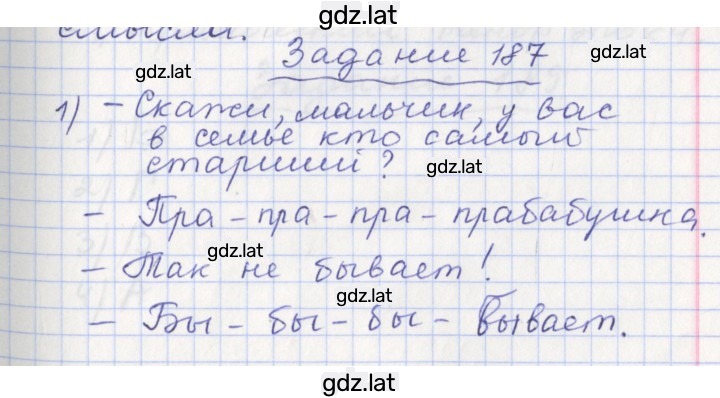 gdz.lat
смысли.
Задание 187
gdz.lat
1) – Скажи, мальчик, у вас
в семье кто самый
старший?
gdz.lat
– Пра – пра – пра – прабабушка.
gdz.lat
– Так не бывает!
gdz.lat
– Бы – бы – бы – бывает.
gdz.lat